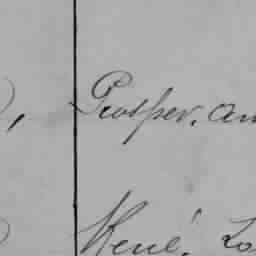 Prosper. Am
René. Lo